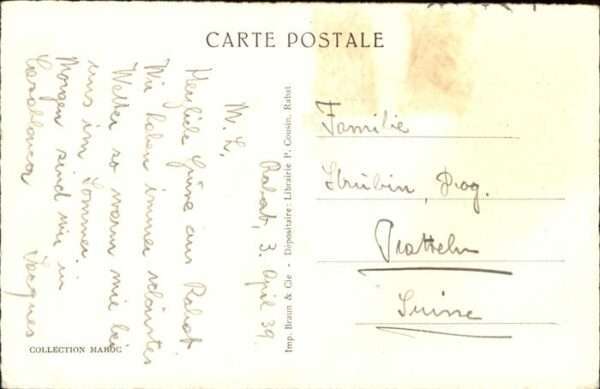 CARTE POSTALE
Rabat, 3. April 39.
M. L,
Herzliche Grüsse aus Rabat.
Wir haben immer schönstes
Wetter so warm wie bei
uns im Sommer.
Morgen sind wir in
Casablanca Jacques
Imp. Braun & Cie - Dépositaire: Librairie P. Cousin, Rabat
Familie
Strübin, Drog.
Pratteln
Suisse
COLLECTION MAROC